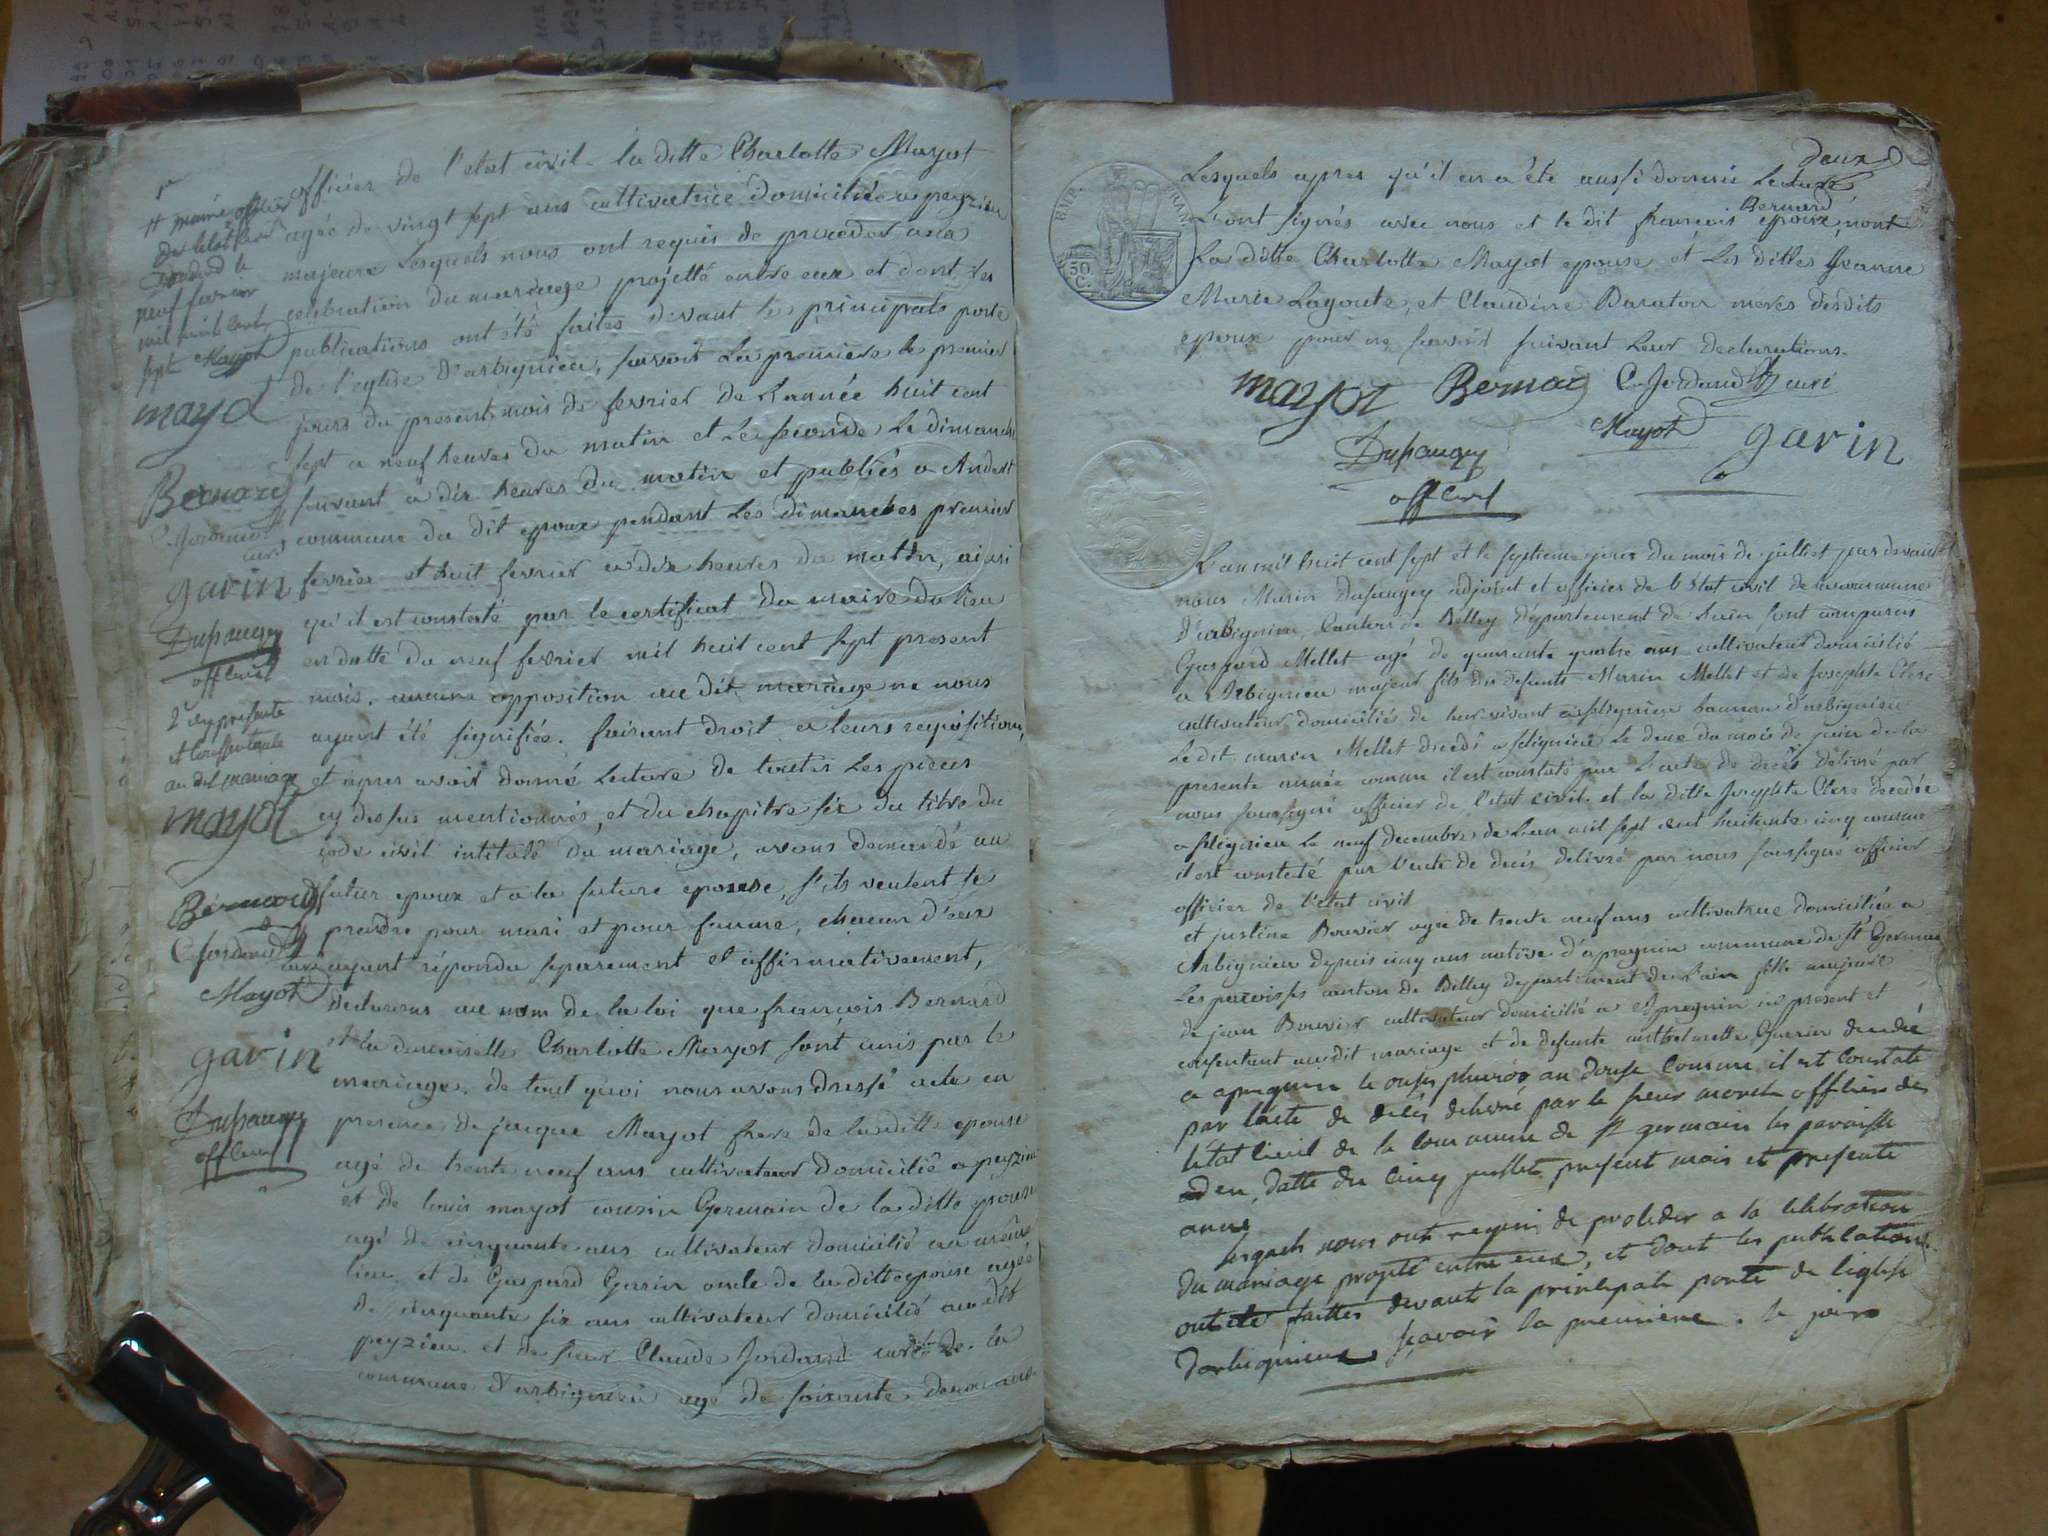 officier de l'etat civil. la ditte Charlotte Mayot
agée de vingt sept ans cultivatrice domiciliée a peyzieu
majeure Lesquels nous ont requis de proceder a la
celebration du mariage projetté entre eux et dont les
publications ont été faites devant la principale porte
de l'eglise d'arbignieu, savoir La premiere le premier
jours du present mois de fevrier de L'année huit cent
sept a neuf heures du matin et La seconde Le dimanche
suivant a dix heures du matin et publiés a Andert
commune du dit epoux pendant Les dimanches premier
fevrier et huit fevrier a dix heures du matin, ainsi
qu'il est constaté par le certificat du maire du lieu
en datte du neuf fevrier mil huit cent sept present
mois. aucune opposition au dit mariage ne nous
ayant été signifiée. faisant droit a leurs requisitions,
et apres avoir donné Lecture de toutes Les pieces
cy dessus mentionnés, et du chapitre six du titre du
code civil intitulé du mariage, avons demandé au
futur epoux et a la future epouse, s'ils veulent se
prendre pour mari et pour femme, chacun d'eux
ayant répondu separement et affirmativement,
declarons au nom de la loi que françois Bernard
et la demoiselle Charlotte Mayot sont unis par le
mariage. de tout quoi nous avons dressé acte en
presence de jacque Mayot frere de la ditte epouse
agé de trente neuf ans cultivateur domicilié a peyzieu
et de louis mayot cousin Germain de la ditte epouse
agé de cinquante ans cultivateur domicilié au même
lieu. et de Gaspard Gavin oncle de la ditte epouse agée
de cinquante six ans cultivateur domicilié au dit
peyzieu. et de sieur Claude Jordand curé de la
commune d'arbignieu agé de soixante
maire officier
de l'état
neuf fevrier
mil huit cent
sept Mayot
mayot
Bernard
C. Jordand
curé
gavin
Dupaugey
off civil
2 cy presente
et consentente
au dit mariage
mayot
Bernard
C. Jordand
curé
Mayot
gavin
Dupaugey
off civil
deux
EMP. FRAN.
50
C.
Lesquels apres qu'il en a été aussi donnés Lecture
L'ont signés avec nous et le dit francois Bernard epoux, nont
La ditte Charlotte Mayot epouse et Les dittes Jeanne
Marie Layoute, et Claudine Baraton meres desdits
epoux pour ne savoir suivant Leur declarations.
mayot Bernard C. Jordand curé
Dupaugey Mayot gavin
off civil
L'an mil huit cent sept et le septieme jour du mois de juillet par devant
nous Marin Dupaugey adjoint et officier de l'état civil de la commune
d'arbignieu, Canton de Belley département de l'ain sont comparus
Gaspard Mellet agé de quarante quatre ans cultivateur domicilié
a Arbignieu majeur fils des defunts Marin Mellet et de Josephte Clerc
cultivateur, domiciliés de leur vivant a hameau d'arbignieu
Le dit marin Mellet decedé a le deux du mois de juin de la
presente année comme il est constaté par L'acte de decés délivré par
nous soussigné officier de l'etat civil. et la ditte Josephte Clerc decedée
a le neuf decembre de L'an mil sept cent huitante cinq comme
il est constaté par l'acte de decés delivré par nous soussigné officier
officier de l'etat civil
et justine Bouvier agée de trente neuf ans cultivatrice domiciliée a
Arbignieu depuis cinq ans native d'apregnin commune de St Germain
Les paroisses canton de Belley departement de l'ain fille majeure
de jean Bouvier cultivateur domicilié a Apregnin ici present et
consentant au dit mariage et de defunte Guerin decedée
a apregnin le onze pluvios an douse comme il est constaté
par lacte de decés delivré par le sieur officier de
létat civil de la commune de St germain les paroisse
en datte du cinq juillet present mois et presente
année
lesquels nous ont requis de proceder a la celebration
du mariage projeté entre eux, et dont les publications
ont été faittes devant la principale porte de léglise
darbignieux sçavoir la premiere. le jour